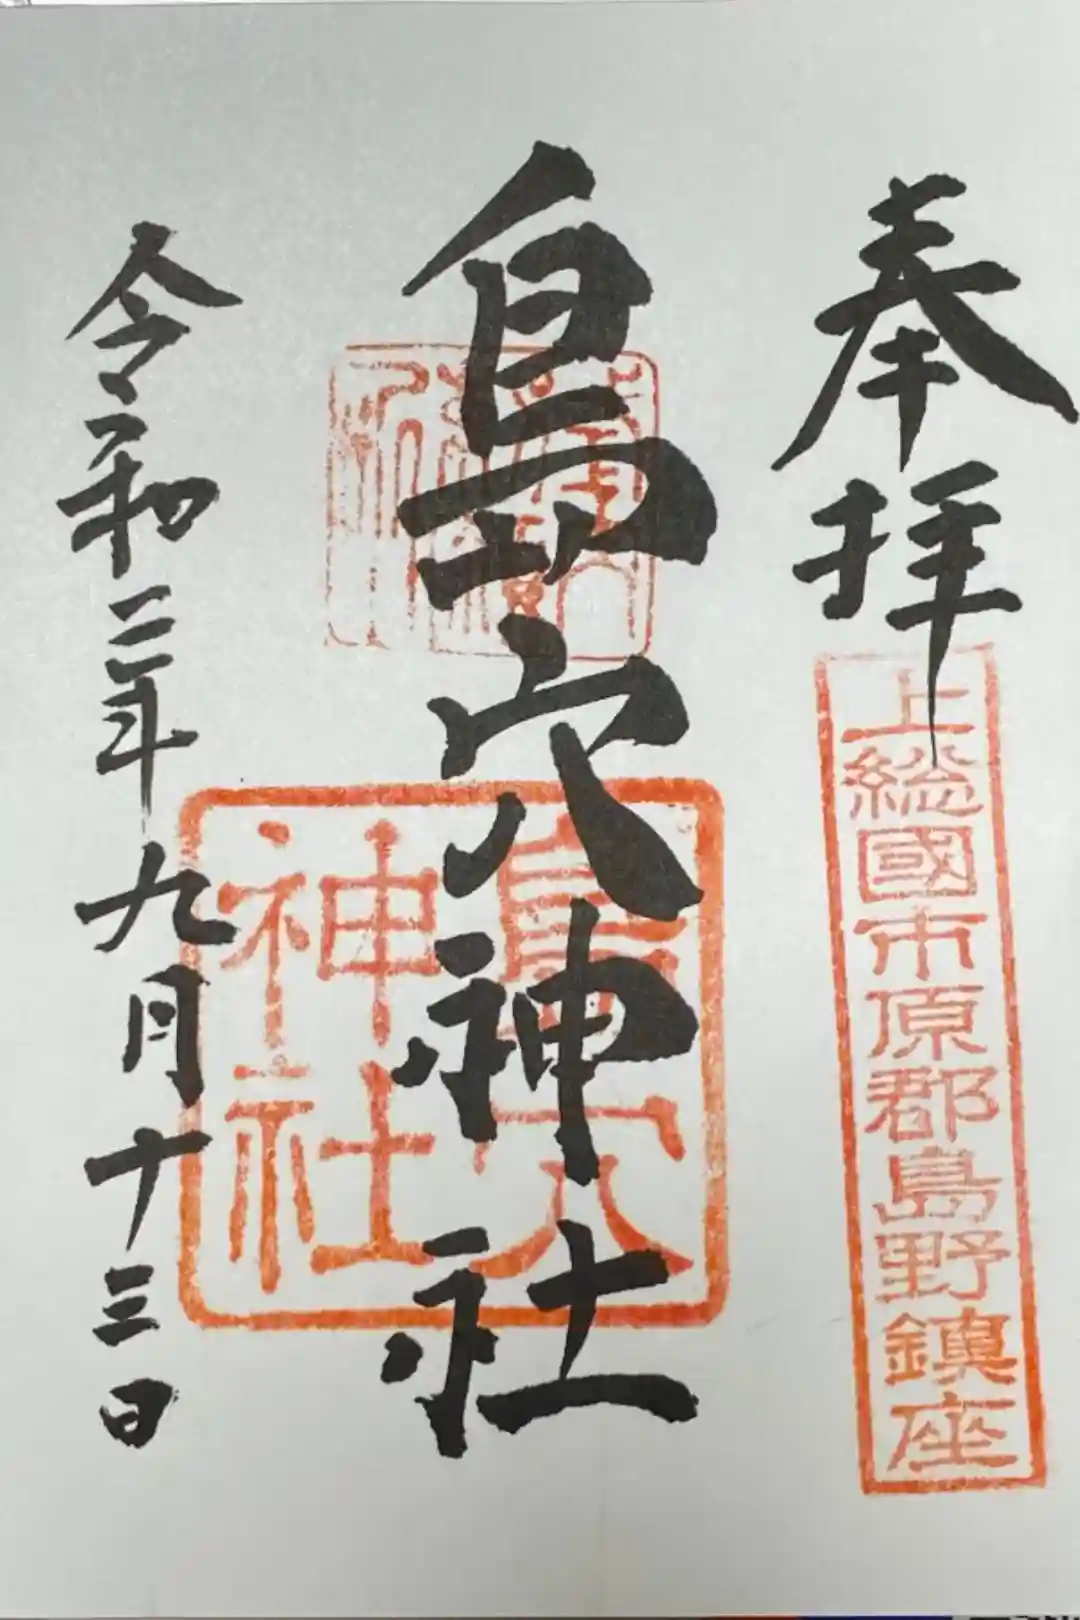 奉拝
上総國市原郡島野鎭座
島穴神社
島穴
神社
令和二年九月十三日